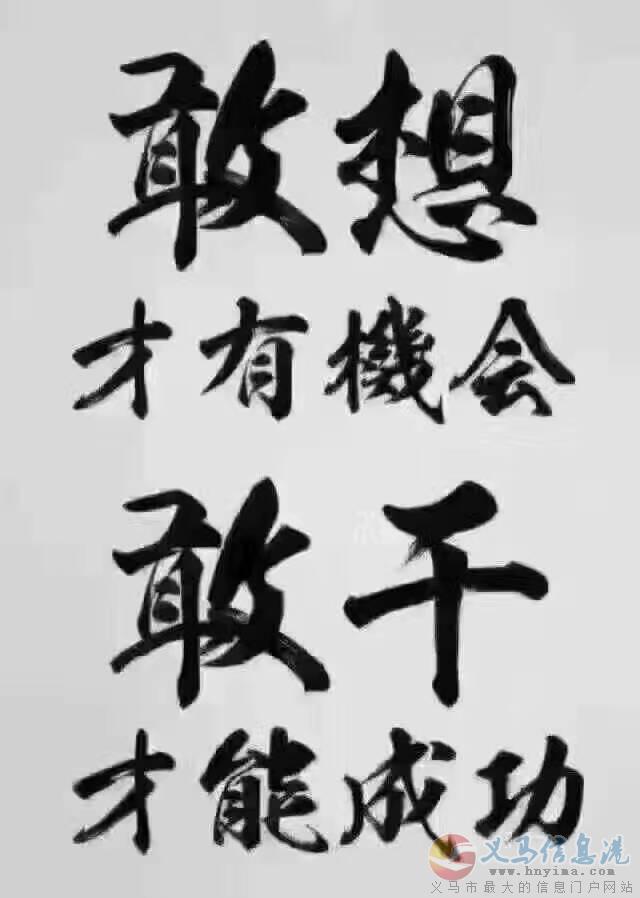 敢想
才有機会
敢干
才能成功
义马信息港
www.hnyima.com
义马市最大的信息门户网站